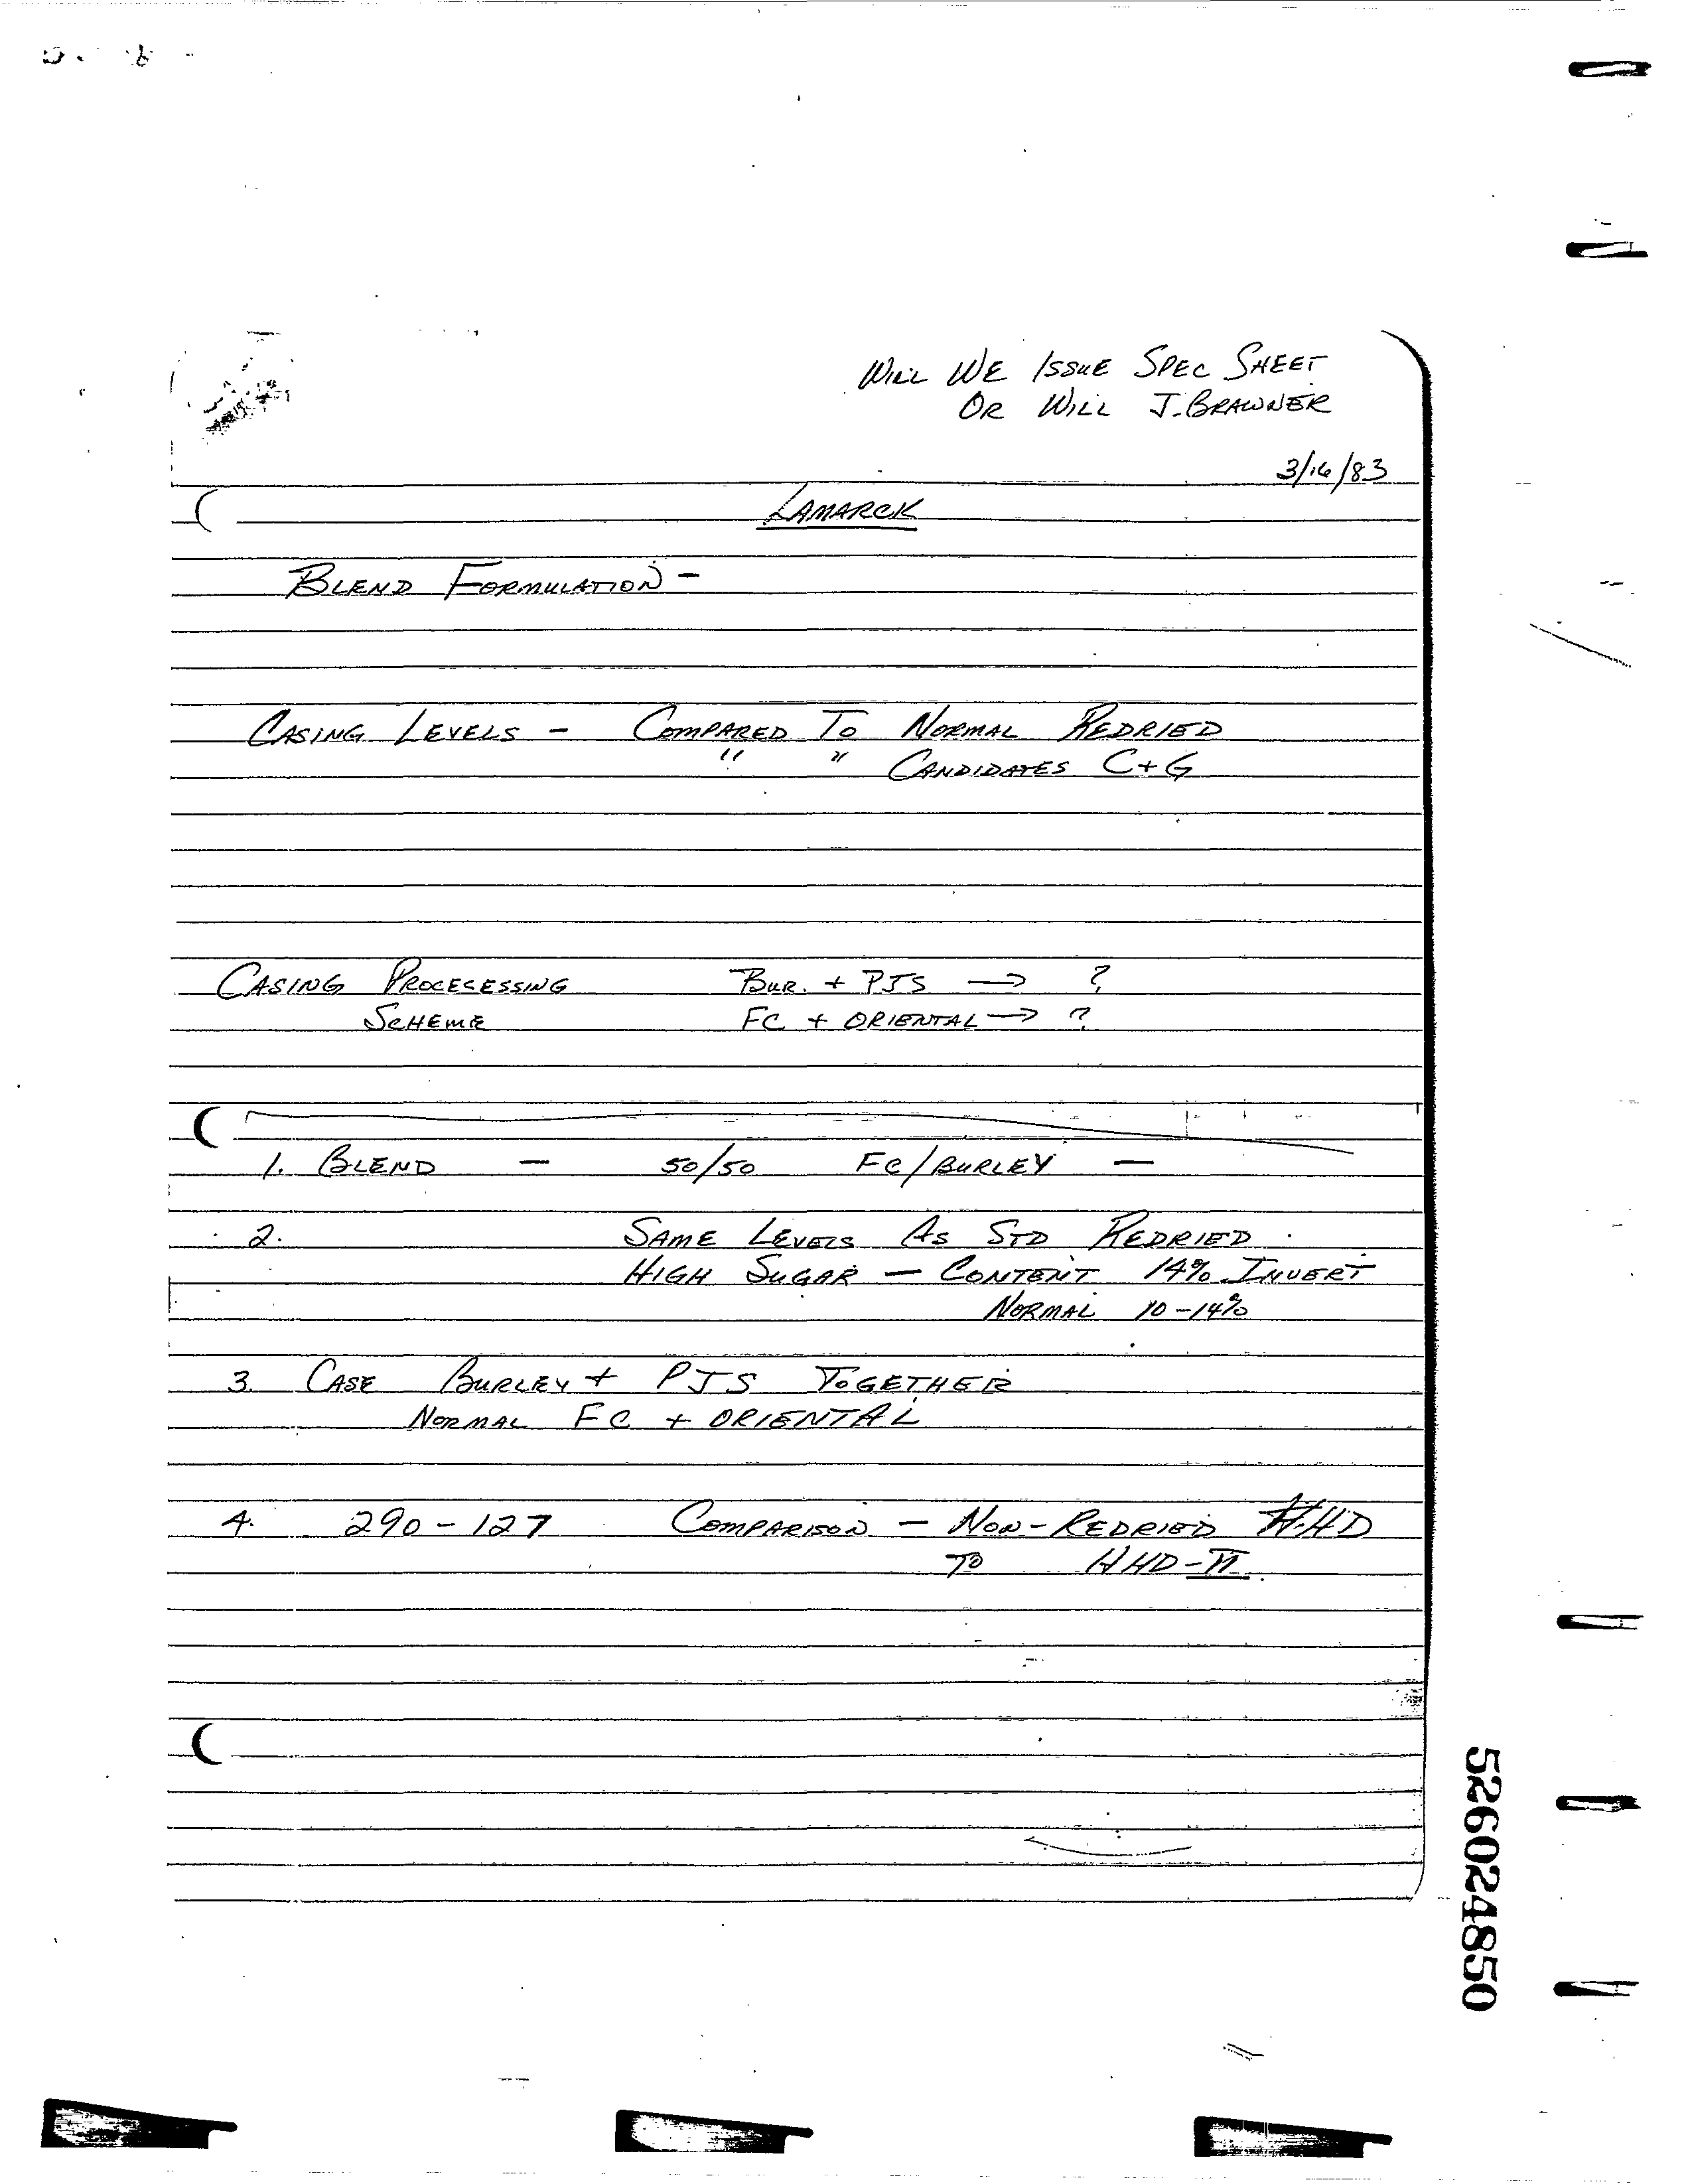 WILL WE ISSUE SPEC SHEET
OR WILL J. BRAWNER
3/16/83
LAMARCK
BLEND FORMULATION -
CASING LEVELS - COMPARED TO NORMAL REDRIED
" " CANDIDATES C+G
CASING PROCECESSING BUR. + PJS → ?
SCHEME FC + ORIENTAL → ?
1. BLEND - 50/50 FC/BURLEY -
2. SAME LEVELS AS STD REDRIED.
HIGH SUGAR - CONTENT 14% INVERT
NORMAL 10-14%
3. CASE BURLEY + PJS TOGETHER
NORMAL FC + ORIENTAL
4. 290-127 COMPARISON - NON-REDRIED HHD
TO HHD-II
526024850